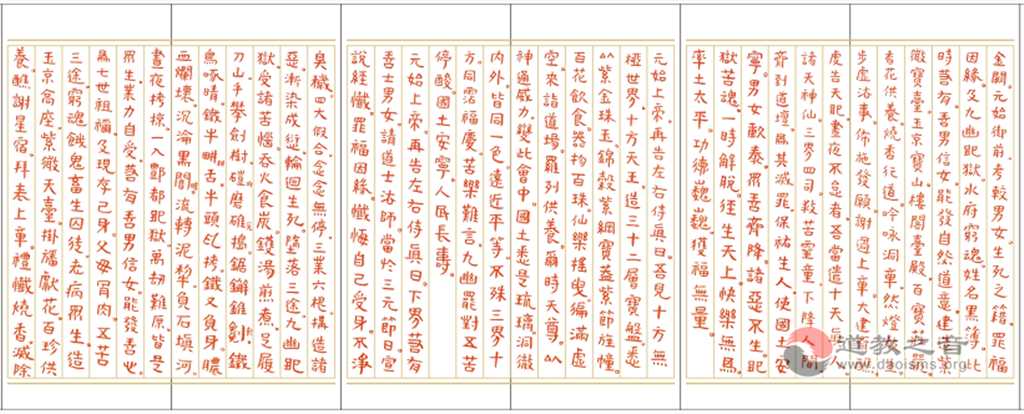 金闕元始御前考較男女生死之籍罪福
因緣及九幽地獄水府窮魂姓名黑簿比
時吾有善男信女能發自然道意建
微寶臺玉京寶山樓閣臺殿百寶莊嚴
香花供養燒香行道吟咏洞章然燈
步虛沽事佈施發願謝過上章大建
虛告天地晝夜不怠者吾當遣十天
諸天神仙三界四司救苦靈童下降人間
齊到道壇為其滅罪保祐生人使國土安
寧男女歡泰眾善齊降諸惡不生地
獄苦魂一時解脫徑生天上快樂無為
率土太平功德巍巍獲福無量
元始上帝再告左右侍真曰吾見十方無
極世界十方天王造三十二層寶盤悉
以紫金珠玉錦縠紫綱寶蓋紫節旌幢
百花飲食器物百珠仙樂搖曳徧滿虛
空來詣道場羅列供養爾時天尊以
神通威力變此會中國土悉是琉璃洞徹
內外皆同一色遠近平等不殊三界十
方同霑福慶苦樂難言九幽罷對五苦
停酸國土安寧人民長壽
元始上帝再告左右侍真曰下界吾有
善士男女請道士法師當於三元節日宣
說經懺罪福因緣懺悔自己受身不淨
臭穢四大假合念念無停三業六根構造諸
惡漸染成愆輪迴生死墮落三途九幽地
獄受諸苦惱吞火食炭鑊湯煎煮足履
刀山手攀劍樹磑磨碓搗鋸解錐剉鐵
鳥啄睛鐵犁耕舌牛頭 拷鐵叉負身膿
血爛壞沉淪黑闇流轉泥犁負石填河
晝夜拷掠一入酆都地獄萬劫難原皆是
眾生業力自受吾有善男信女能發善心
為七世祖禰及現存己身父母骨肉五苦
三途窮魂餓鬼畜生囚徒老病眾生造
玉京高座紫微天臺掛旛獻花百珍供
養醮謝星宿拜表上章禮懺燒香滅除
道教之音
www.daoisms.org